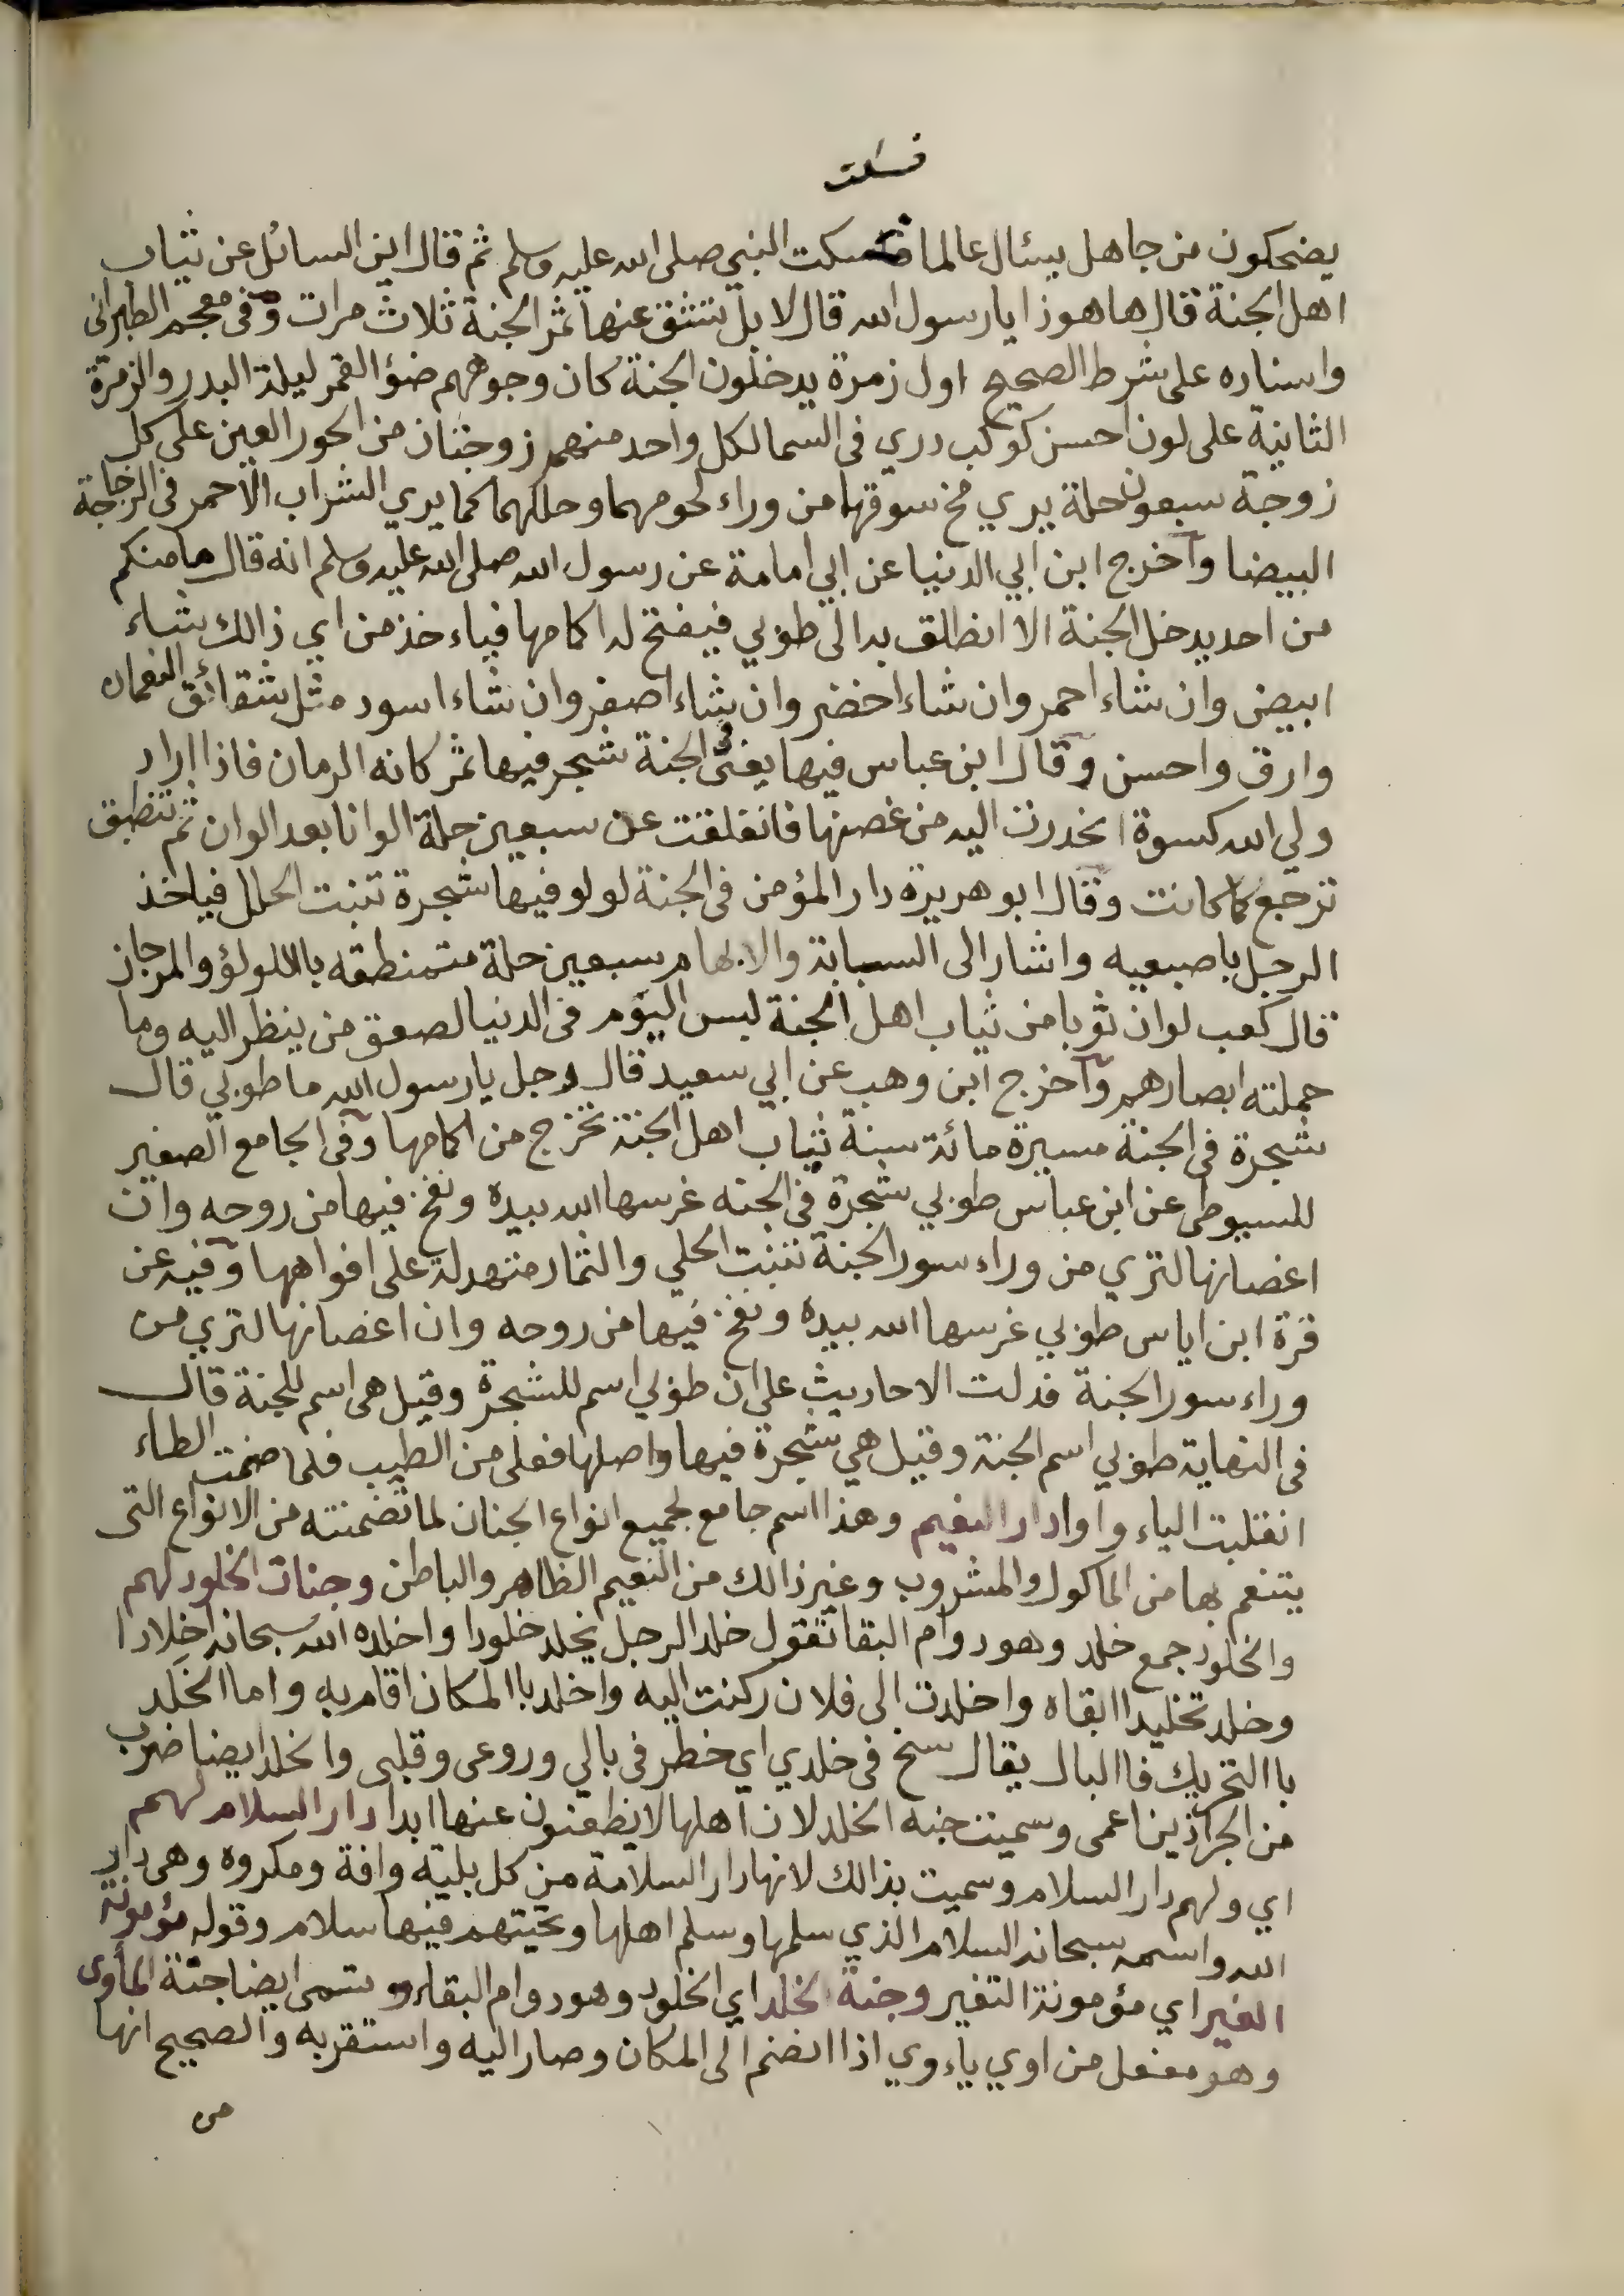 فسكت
يضحكون من جاهل يسئال عالما فسكت النبي صلى الله عليه وسلم ثم قال اين السائل عن ثياب
اهل الجنة قال ها هوذا يا رسول الله قال لا بل تشقق عنها ثمر الجنة ثلاث مرات وفى معجم الطبرانى
واسناده على شرط الصحيح اول زمرة يدخلون الجنة كان وجوههم ضؤ القمر ليلة البدر والزمرة
الثانية على لون احسن كوكب دري فى السما لكل واحد منهم زوجتان من الحور العين على كل
زوجة سبعون حلة يري مخ سوقها من وراء لحومهما وحللهما كما يري الشراب الاحمر فى الزجاجة
البيضا واخرج ابن ابي الدنيا عن ابي امامة عن رسول الله صلى الله عليه وسلم انه قال ما منكم
من احد يدخل الجنة الا انطلق به الى طوبي فيفتح له اكامها فياءخذ من اي ذالك شاء
ابيض وان شاء احمر وان شاء اخضر وان شاء اصفر وان شاء اسود مثل شقائق النعمان
وارق واحسن وقال ابن عباس فيها يعنى الجنة شجر فيها ثمر كانه الرمان فاذا اراد
ولي الله كسوة انحدرت اليه من غصنها فانفلقت عن سبعين حلة الوانا بعد الوان ثم تنطبق
ترجع كما كانت وقال ابو هريرة دار المؤمن فى الجنة لولو فيها شجرة تنبت الحلل فياخذ
الرجل باصبعيه واشار الى السبابة والابهام سبعين حلة متمنطقه باللولؤ والمرجان
قال كعب لو ان ثوبا من ثياب اهل الجنة لبس اليوم فى الدنيا لصعق من ينظر اليه وما
حملته ابصارهم واخرج ابن وهب عن ابي سعيد قال رجل يا رسول الله ما طوبي قال
شجرة فى الجنة مسيرة مائة سنة ثياب اهل الجنة تخرج من اكمامها وفى الجامع الصغير
للسيوطى عن ابن عباس طوبي شجرة فى الجنه غرسها الله بيده ونفخ فيها من روحه وان
اغصانها لتري من وراء سور الجنة تنبت الحلي والثمار متهدلة على افواهها وفيه عن
قرة ابن اياس طوبي غرسها الله بيده ونفخ فيها من روحه وان اغصانها لتري من
وراء سور الجنة فدلت الاحاديث على ان طوبي اسم للشجرة وقيل هى اسم للجنة قال
فى النهاية طوبي اسم الجنة وقيل هي شجرة فيها واصلها فعلى من الطيب فلما ضمت الطاء
انقلبت الياء واوا دار النعيم وهذا اسم جامع لجميع انواع الجنان لما تضمنته من الانواع التى
يتنعم بها من الماكول والمشروب وغير ذالك من النعيم الظاهر والباطن وجنات الخلود لهم
والخلود جمع خلد وهو دوام البقا تقول خلد الرجل يخلد خلودا واخلده الله سبحانه اخلادا
وخلد تخليدا ابقاه واخلدت الى فلان ركنت اليه واخلد باالمكان اقام به واما الخلد
باالتحريك فاالبال يقال سنح فى خلدي اي خطر فى بالي وروعى وقلبى والخلد ايضا ضرب
من الجرذين اعمى وسميت جنه الخلد لان اهلها لا يظعنون عنها ابدا دار السلام لهم
اي ولهم دار السلام وسميت بذالك لانها دار السلامة من كل بلية وافة ومكروه وهى دار
الله واسمه سبحانه السلام الذي سلمها وسلم اهلها وتحيتهم فيها سلام وقوله مؤمونة
الغير اي مؤمونة التغير وجنة الخلد اي الخلود وهو دوام البقاء وتسمى ايضا جنة المأوى
وهو مفعل من اوي ياءوي اذا انضم الى المكان وصار اليه واستقر به والصحيح انها
من